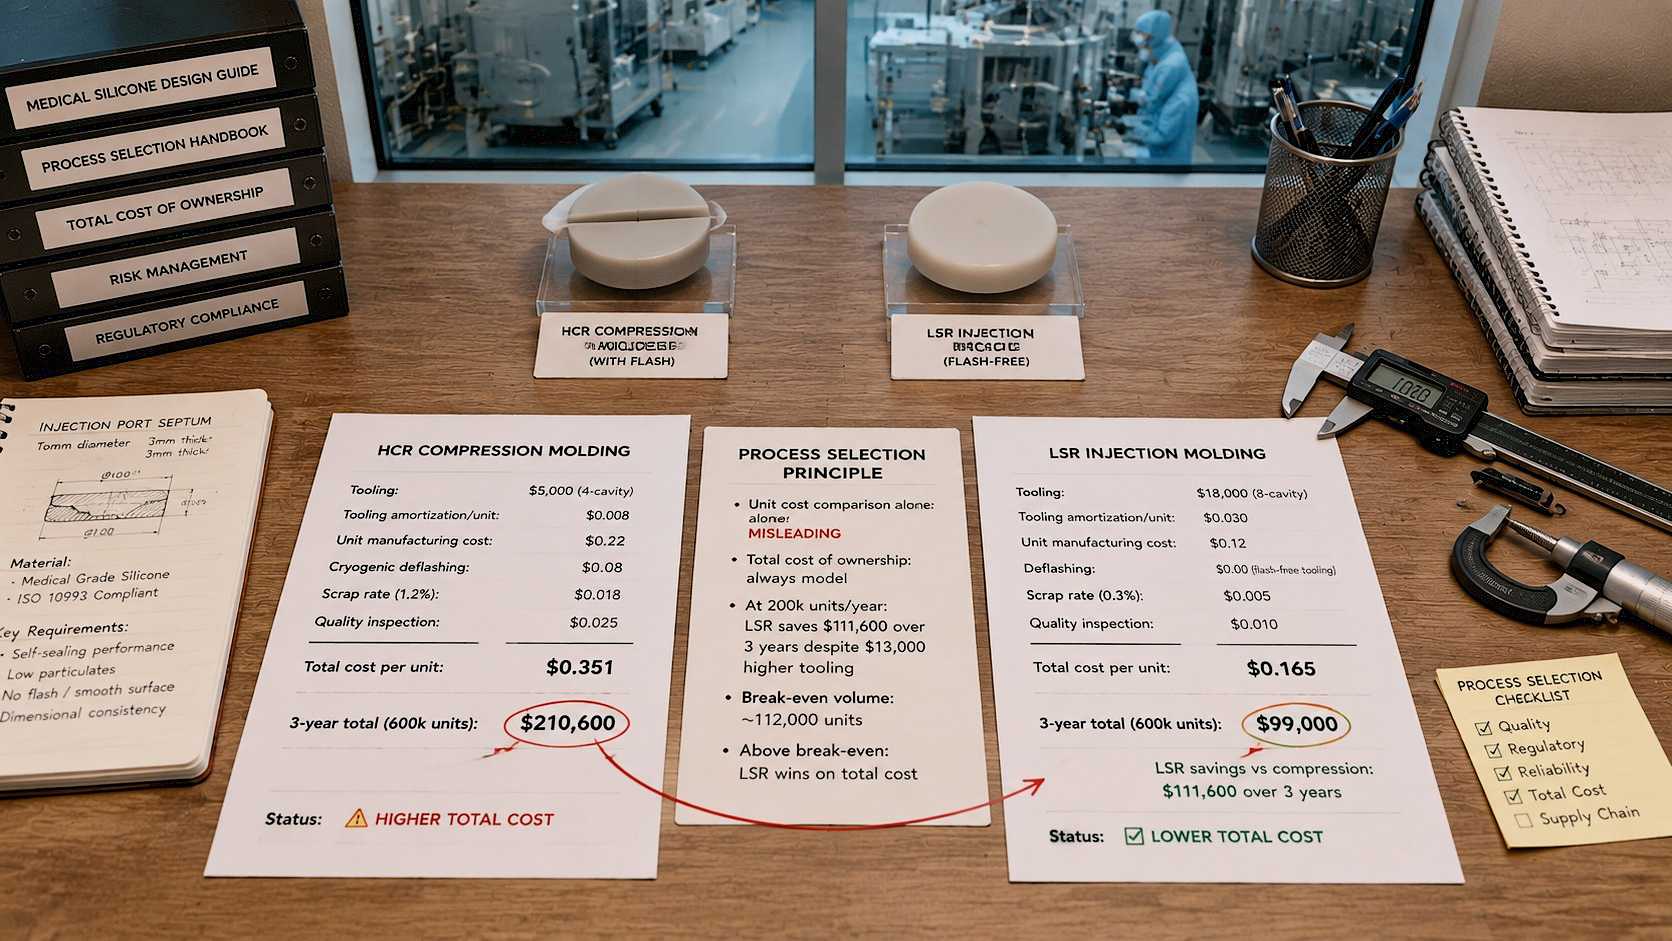 MEDICAL SILICONE DESIGN GUIDE
PROCESS SELECTION HANDBOOK
TOTAL COST OF OWNERSHIP
RISK MANAGEMENT
REGULATORY COMPLIANCE
HCR COMPRESSION
(WITH FLASH)
LSR INJECTION
(FLASH-FREE)
INJECTION PORT SEPTUM
Tomm diameter 3mm thick:
3mm thick:
Material:
- Medical Grade Silicone
- ISO 10993 Compliant
Key Requirements:
• Self-sealing performance
Low particulates
No flash / smooth surface
Dimensional consistency
HCR COMPRESSION MOLDING
Tooling: $5,000 (4-cavity)
Tooling amortization/unit: $0.008
Unit manufacturing cost: $0.22
Cryogenic deflashing: $0.08
Scrap rate (1.2%): $0.018
Quality inspection: $0.025
Total cost per unit: $0.351
3-year total (600k units): $210,600
Status: HIGHER TOTAL COST
PROCESS SELECTION
PRINCIPLE
• Unit cost comparison alone:
alone:
MISLEADING
• Total cost of ownership:
always model
• At 200k units/year:
LSR saves $111,600 over
3 years despite $13,000
higher tooling
• Break-even volume:
~112,000 units
• Above break-even:
LSR wins on total cost
LSR INJECTION MOLDING
Tooling: $18,000 (8-cavity)
Tooling amortization/unit: $0.030
Unit manufacturing cost: $0.12
Deflashing: $0.00 (flash-free tooling)
Scrap rate (0.3%): $0.005
Quality inspection: $0.010
Total cost per unit: $0.165
3-year total (600k units): $99,000
LSR savings vs compression:
$111,600 over 3 years
Status: LOWER TOTAL COST
PROCESS SELECTION
CHECKLIST
Quality
Regulatory
Reliability
Total Cost
Supply Chain